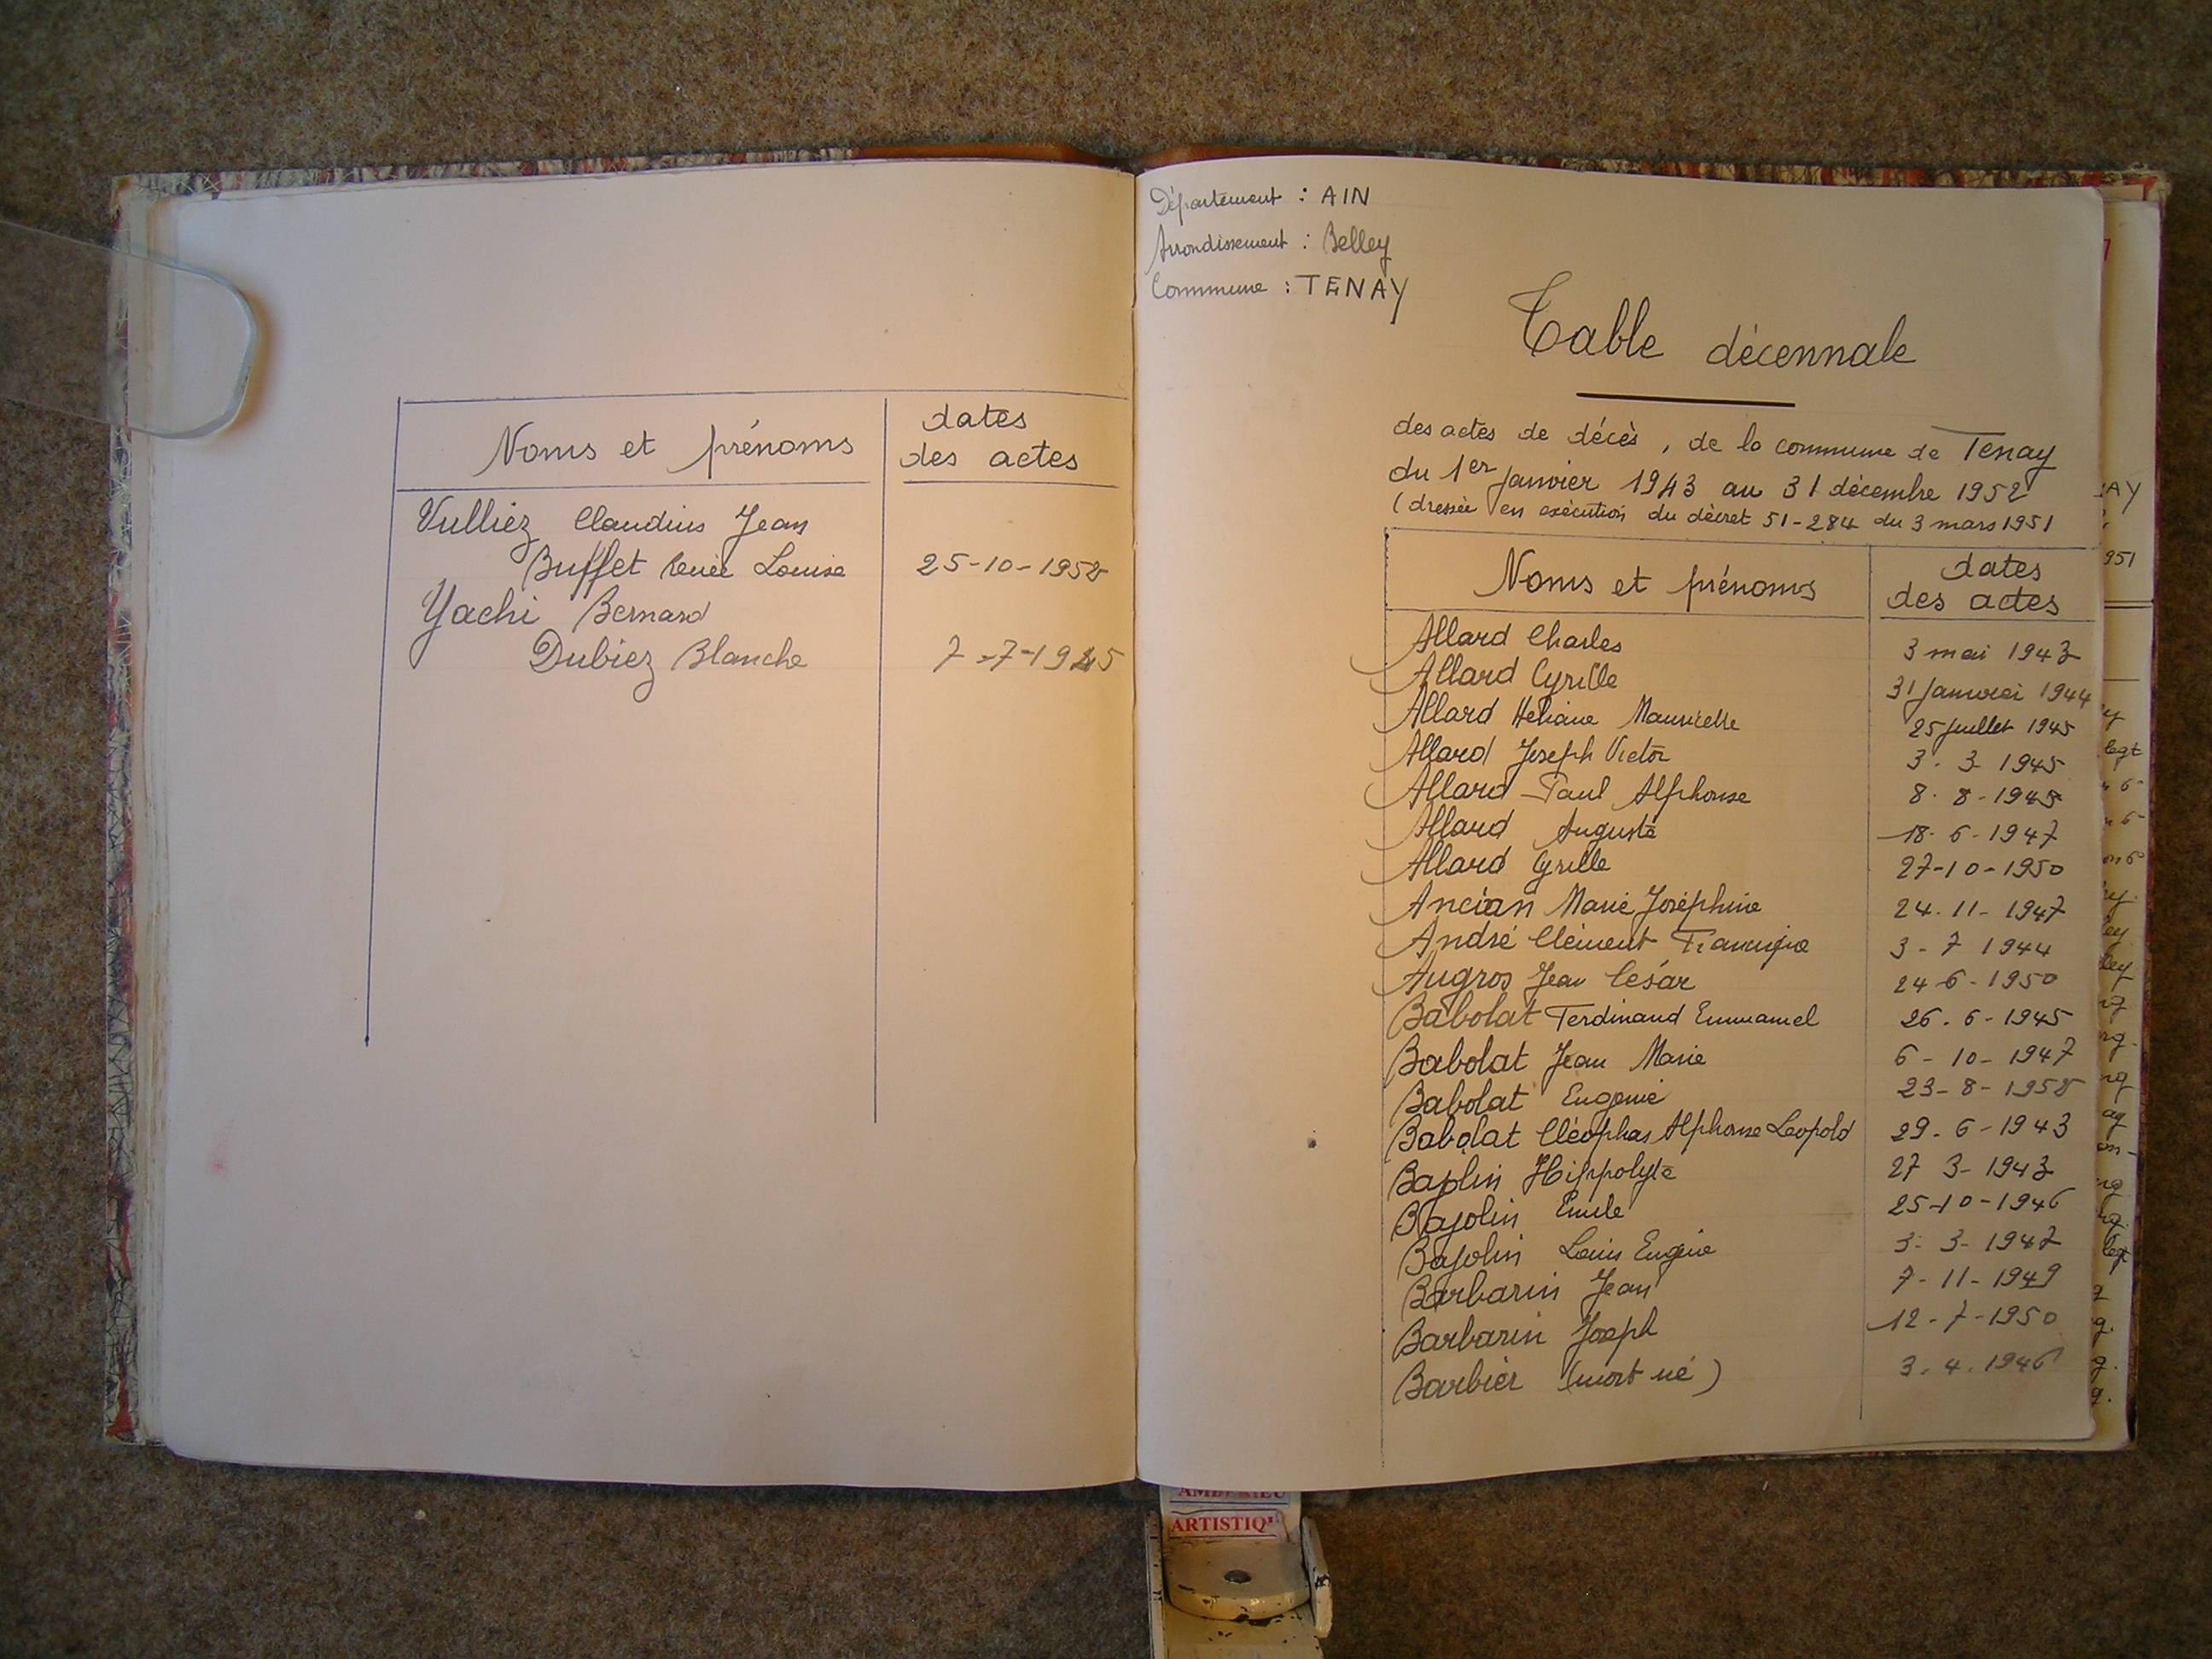 Noms et prénoms dates des actes
Vulliez Claudius Jean
Buffet Louise 25-10-1952
Yachi Bernard
Dubiez Blanche 7-7-1945
Département : AIN
Arrondissement : Belley
Commune : TENAY
Table décennale
des actes de décès, de la commune de Tenay
du 1er janvier 1943 au 31 décembre 1952
(dressée en exécution du décret 51-284 du 3 mars 1951
Noms et prénoms dates des actes
Allard Charles 3 mai 1943
Allard Cyrille 31 Janvier 1944
Allard 25 juillet 1945
Allard Joseph Victor 3. 3 1945
Allard Paul Alphonse 8. 8-1945
Allard Auguste 18-6-1947
Allard Cyrille 27-10-1950
Ancian Marie Joséphine 24.11-1947
André Clément 3-7 1944
Augros Jean César 24-6-1950
Babolat Ferdinand Emmanuel 26.6-1945
Babolat Jean Marie 6-10-1947
Babolat Eugenie 23-8-1952
Babolat Cléophas Alphonse Leopold 29.6-1943
Bajolin Hippolyte 27 3-1943
Bajolin Emile 25-10-1946
Bajolin Louis Eugène 3. 3-1947
Barbarin Jean 7-11-1949
Barbarin Joseph 12-7-1950
Barbier (mort né) 3.4.1946
ARTISTIQ